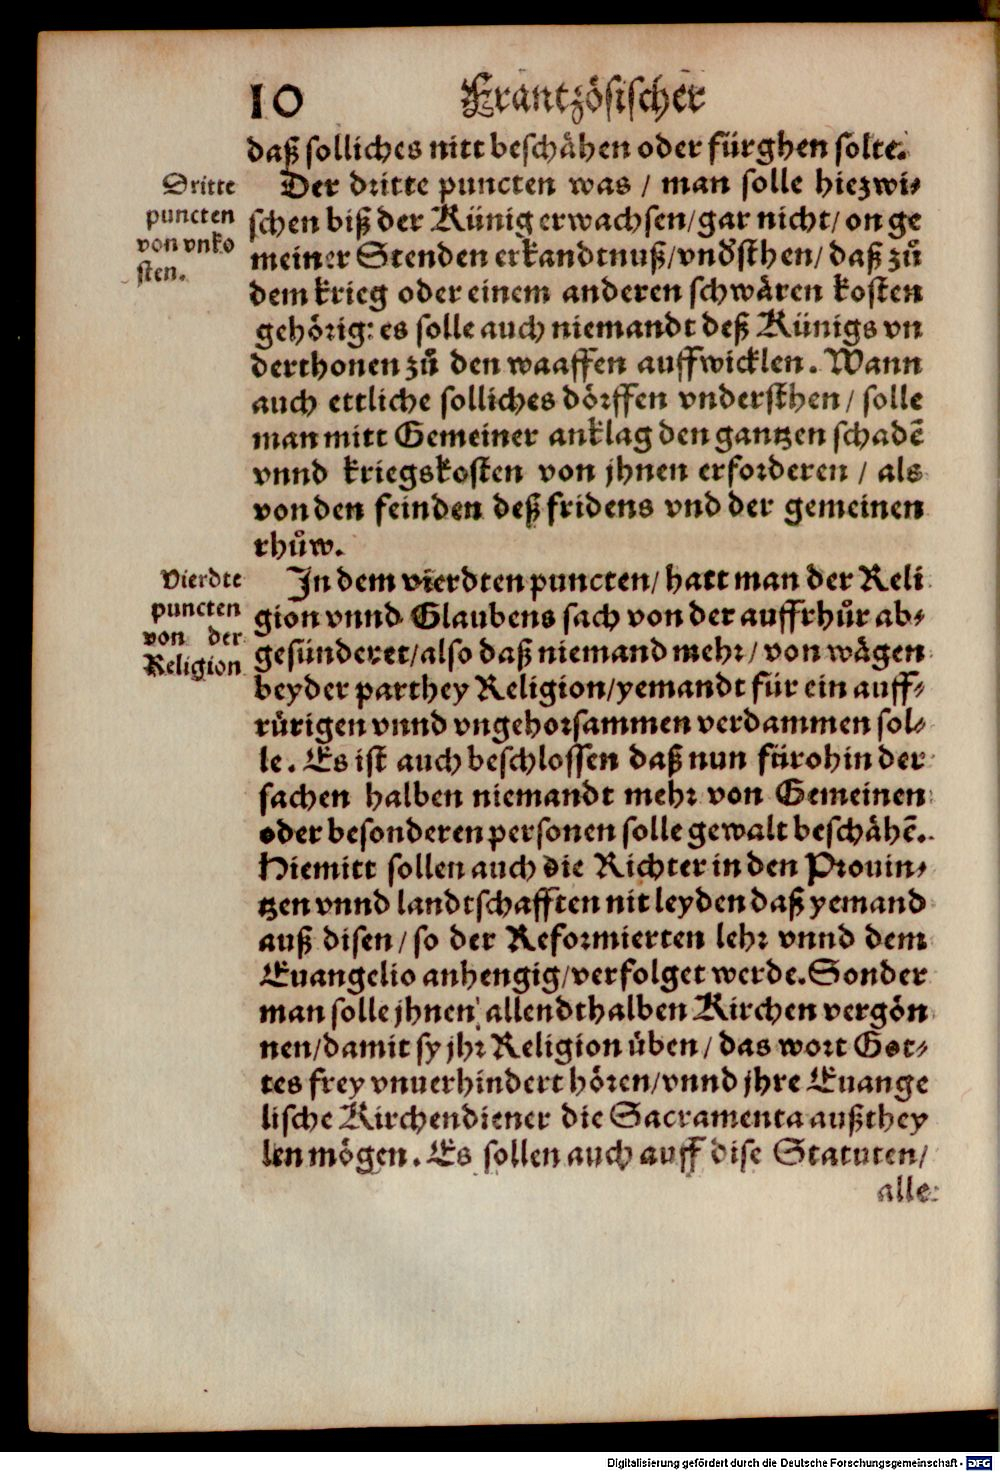 10 Frantzösischer
daß solliches nitt beschähen oder fürghen solte.
Dritte
puncten
von vnko
sten.
Der dritte puncten was / man solle hiezwi⸗
schen biß der Künig erwachsen/gar nicht/ on ge
meiner Stenden erkandtnuß/vnd̕sthen/ daß zů
dem krieg oder einem anderen schwären kosten
gehörig: es solle auch niemandt deß Künigs vn
derthonen zů den waaffen auffwicklen. Wann
auch ettliche solliches dörffen vndersthen / solle
man mitt Gemeiner anklag den gantzen schadē
vnnd kriegskosten von jhnen erforderen / als
von den feinden deß fridens vnd der gemeinen
rhůw.
Vierdte
puncten
von der
Religion
In dem vierdten puncten/ hatt man der Reli
gion vnnd Glaubens sach von der auffrhůr ab⸗
gesünderet/also daß niemand mehr/ von wägen
beyder parthey Religion/yemandt für ein auff⸗
rürigen vnnd vngehorsammen verdammen sol⸗
le. Es ist auch beschlossen daß nun fürohin der
sachen halben niemandt mehr von Gemeinen
oder besonderen personen solle gewalt beschähē.
Hiemitt sollen auch die Richter in den Prouin⸗
tzen vnnd landtschafften nit leyden daß yemand
auß disen / so der Reformierten lehr vnnd dem
Euangelio anhengig/verfolget werde. Sonder
man solle jhnen allendthalben Kirchen vergön
nen/damit sy jhr Religion üben / das wort Got⸗
tes frey vnuerhindert hören/vnnd jhre Euange
lische Kirchendiener die Sacramenta außthey
len mögen. Es sollen auch auff dise Statuten/
alle
Digitalisierung gefördert durch die Deutsche Forschungsgemeinschaft - DFG